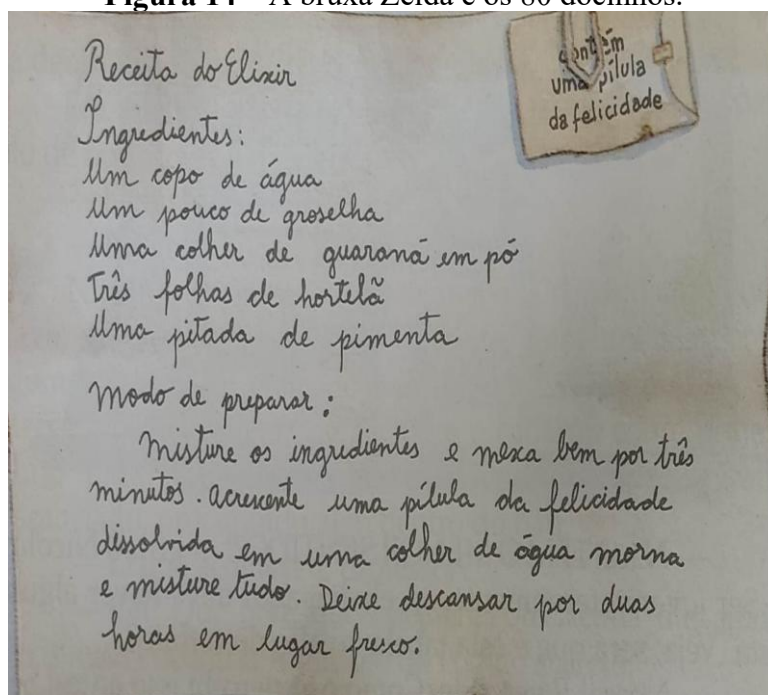 Figura 14 – A bruxa Zelda e os 80 docinhos.
Receita do Elixir
contém
uma pílula
da felicidade
Ingredientes:
Um copo de água
Um pouco de groselha
Uma colher de guaraná em pó
Três folhas de hortelã
Uma pitada de pimenta
Modo de preparar:
Misture os ingredientes e mexa bem por três
minutos. Acrescente uma pílula da felicidade
dissolvida em uma colher de água morna
e misture tudo. Deixe descansar por duas
horas em lugar fresco.